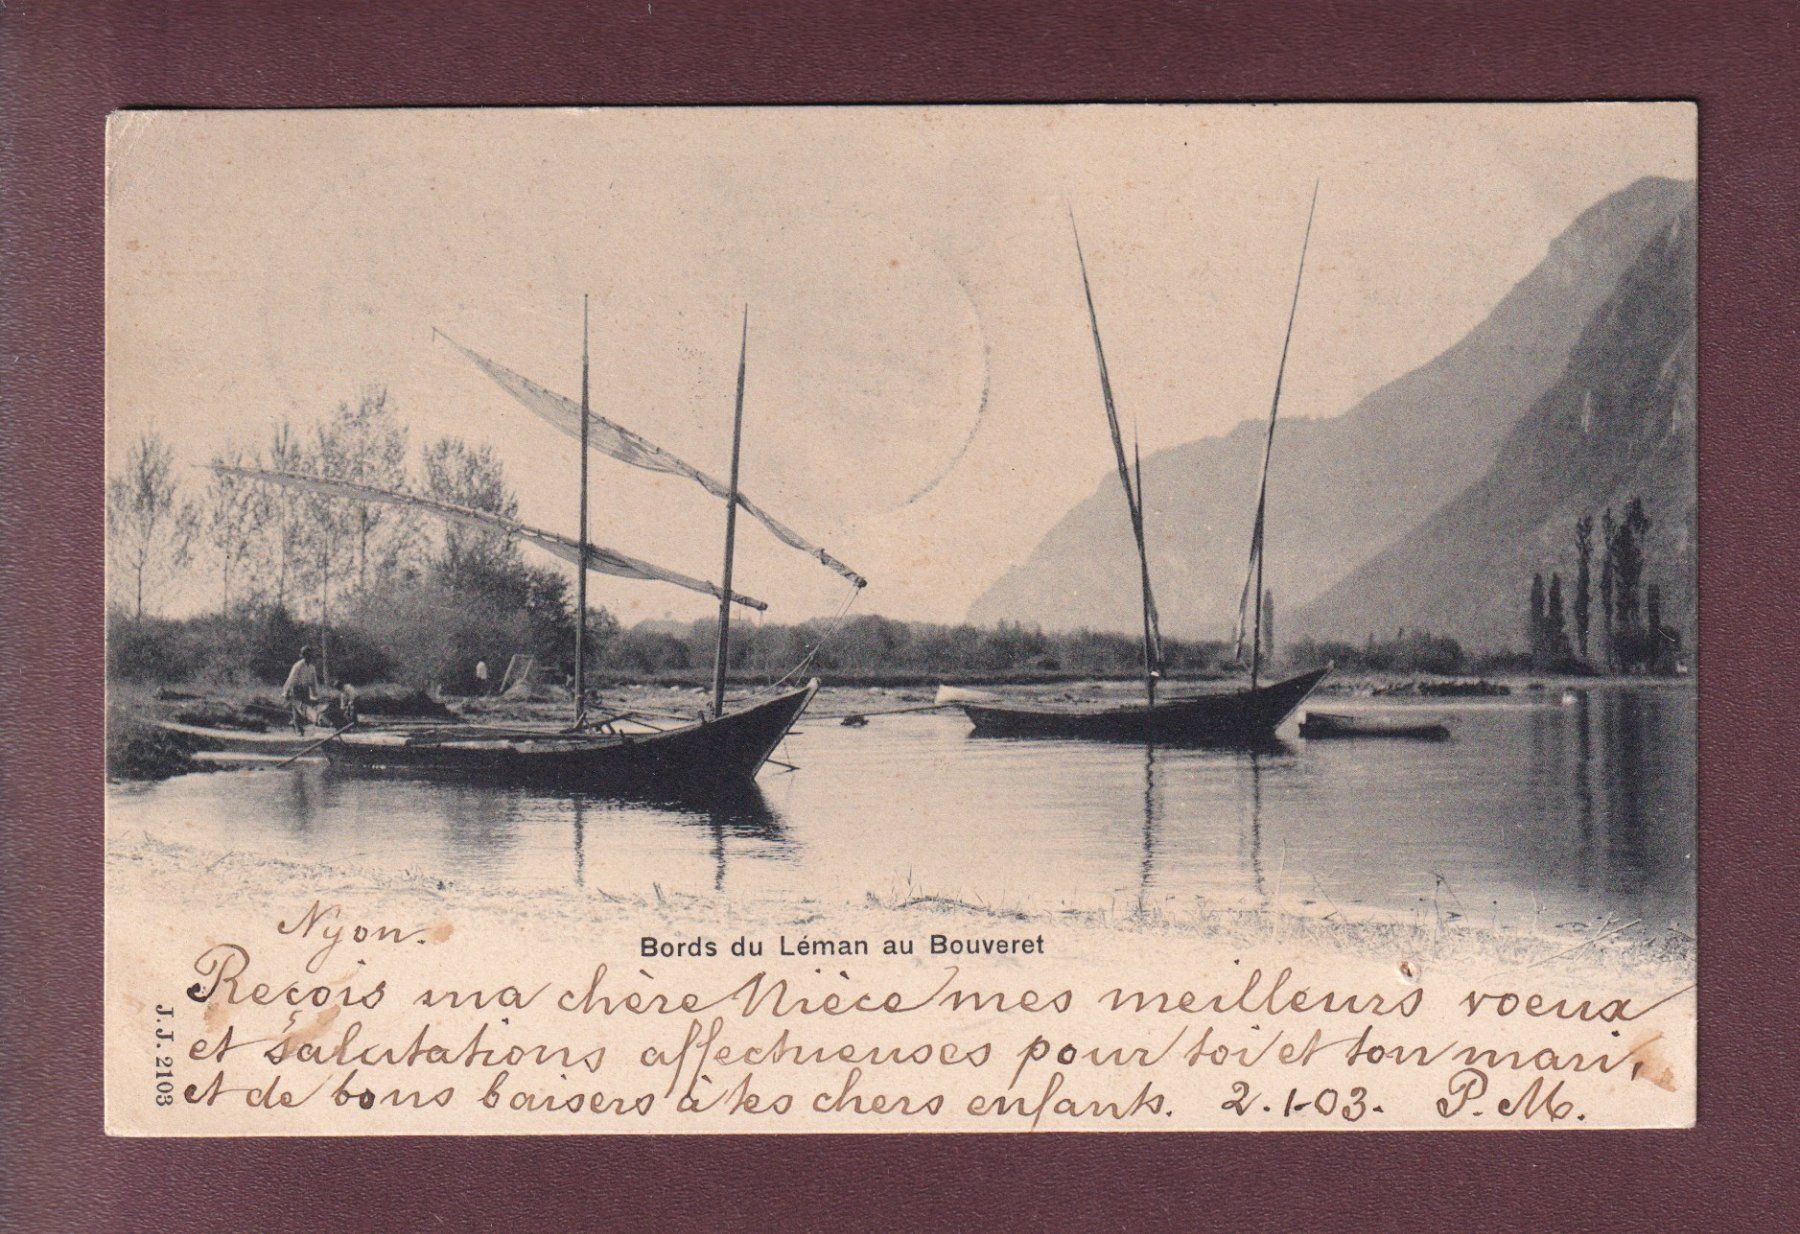 Nyon.
Bords du Léman au Bouveret
Reçois ma chère Nièce mes meilleurs voeux
et salutations affectueuses pour toi et ton mari,
et de bons baisers à tes chers enfants. 2.1-03. P. M.
J.J. 2103